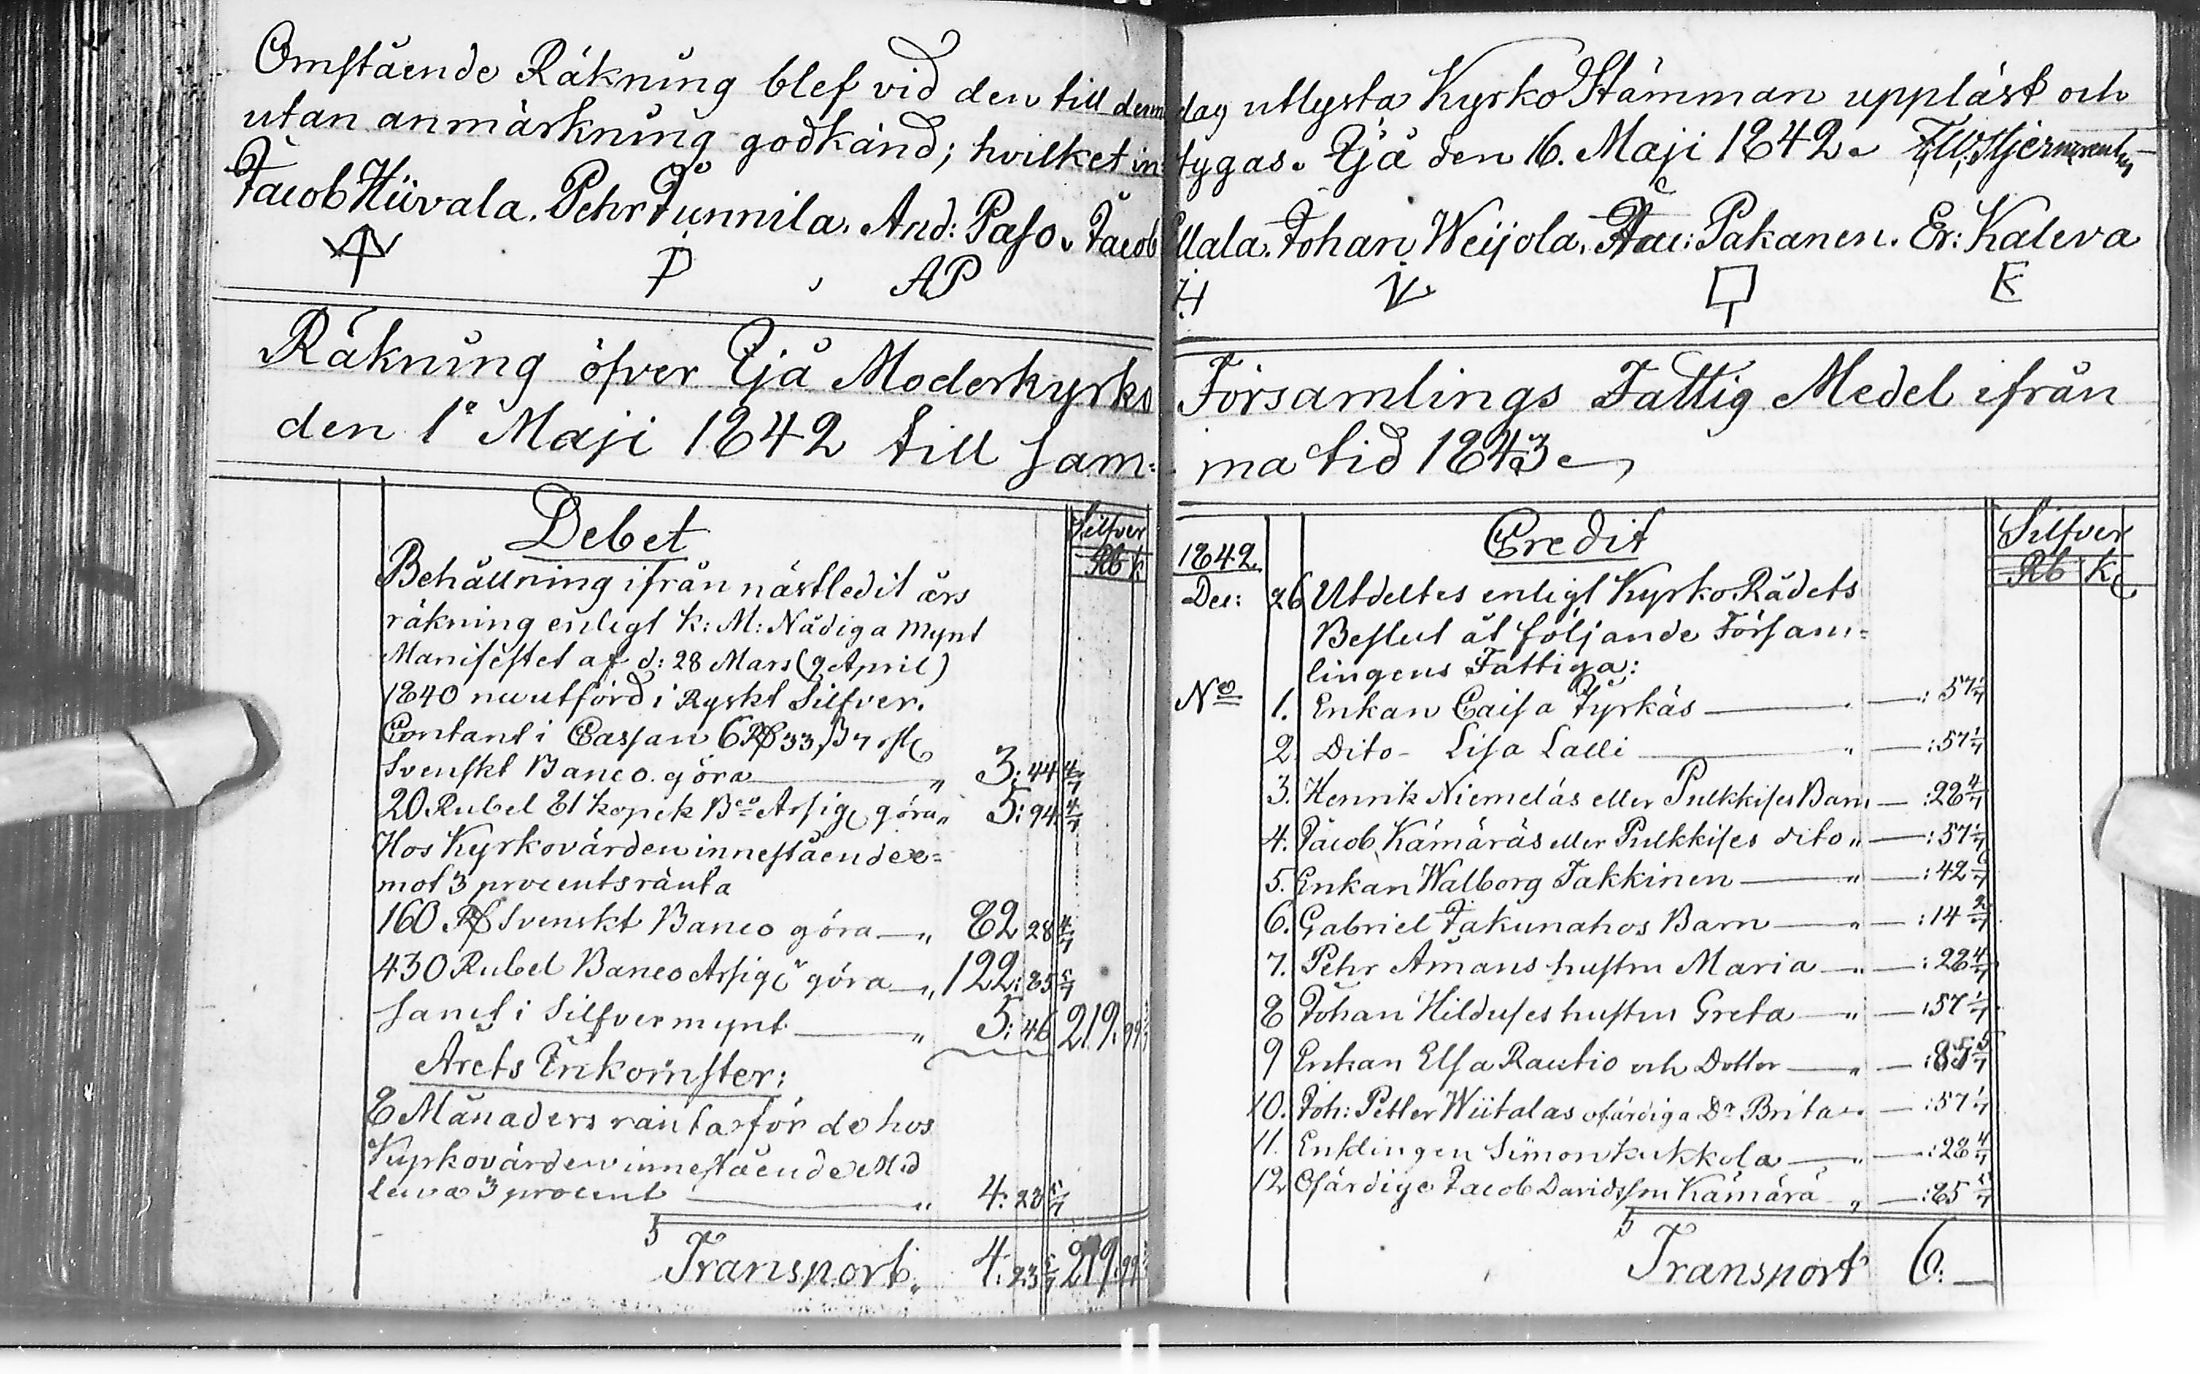 Omstående Räkning blef vid den till denna dag utlysta KyrkoStämman uppläst och
utan anmärkning godkänd; hvilket intygas. Ijå den 16. Maji 1842.
Jacob Hüvala. Pehr Junnila. And: Paso. Jacob Ellala. Johan Weijola. Pakanen. Er: Kaleva
P AP H W E
Räkning öfver Ijå Moderkyrko Församlings Fattig Medel ifrån
den 1ª Maji 1842 till sam= ma tid 1843
Debet
Silfver
Rb k
Behållning ifrån nästledit års
räkning enligt K: M: Nådiga Mynt
Manifestet af d: 28 Mars (9 April)
1840 nu utförd i Ryskt Silfver.
Contant i Cassan 6 Rd 33 ß 7
Svenskt Banco göra „ 3: 44 4/7
20 Rubel 81 kopek Bco Assig göra „ 5: 94 4/7
Hos Kyrkovärden innestående e=
mot 3 procents ränta
160 Rd Svenskt Banco göra „ 82 28 4/7
430 Rubel Banco Assig göra „ 122: 85 5/7
samt i Silfvermynt „ 5: 46 219. 99 3/7
Årets Inkomster:
8 Månaders ränta för de hos
Kyrkovärden innestående Med
len a 3 procent „ 4: 23 5/7
Transport „ 4: 23 5/7 219. 99 3/7
Credit
Silfver
Rb k
1842.
Dec: 26 Utdeltes enligt KyrkoRådets
Beslut åt följande Försam=
lingens Fattiga:
No 1. Enkan Caisa Tyrkäs — : 57 1/7
2. Dito - Lisa Lalli „ — : 57 1/7
3. Henrik Niemeläs eller Pulkkises Barn — : 28 4/7
4. Jacob Kämäräs eller Pulkkises dito „ — : 57 1/7
5. Enkan Walborg Jakkinen „ — : 42 6/7
6. Gabriel Jakunahos Barn „ — : 14 2/7
7. Pehr Åmans hustru Maria „ — : 28 4/7
8 Johan Hilduses hustru Greta „ — : 57 1/7
9 Enkan Elsa Rautio och Dotter „ — : 85 5/7
10. Joh: Petter Wiitalas ofärdiga Dr Brita „ — : 57 1/7
11. Enklingen Simon Kukkola „ — : 28 4/7
12 Ofärdige Jacob Davidsson Kämärä „ — : 85 5/7
Transport 6: —